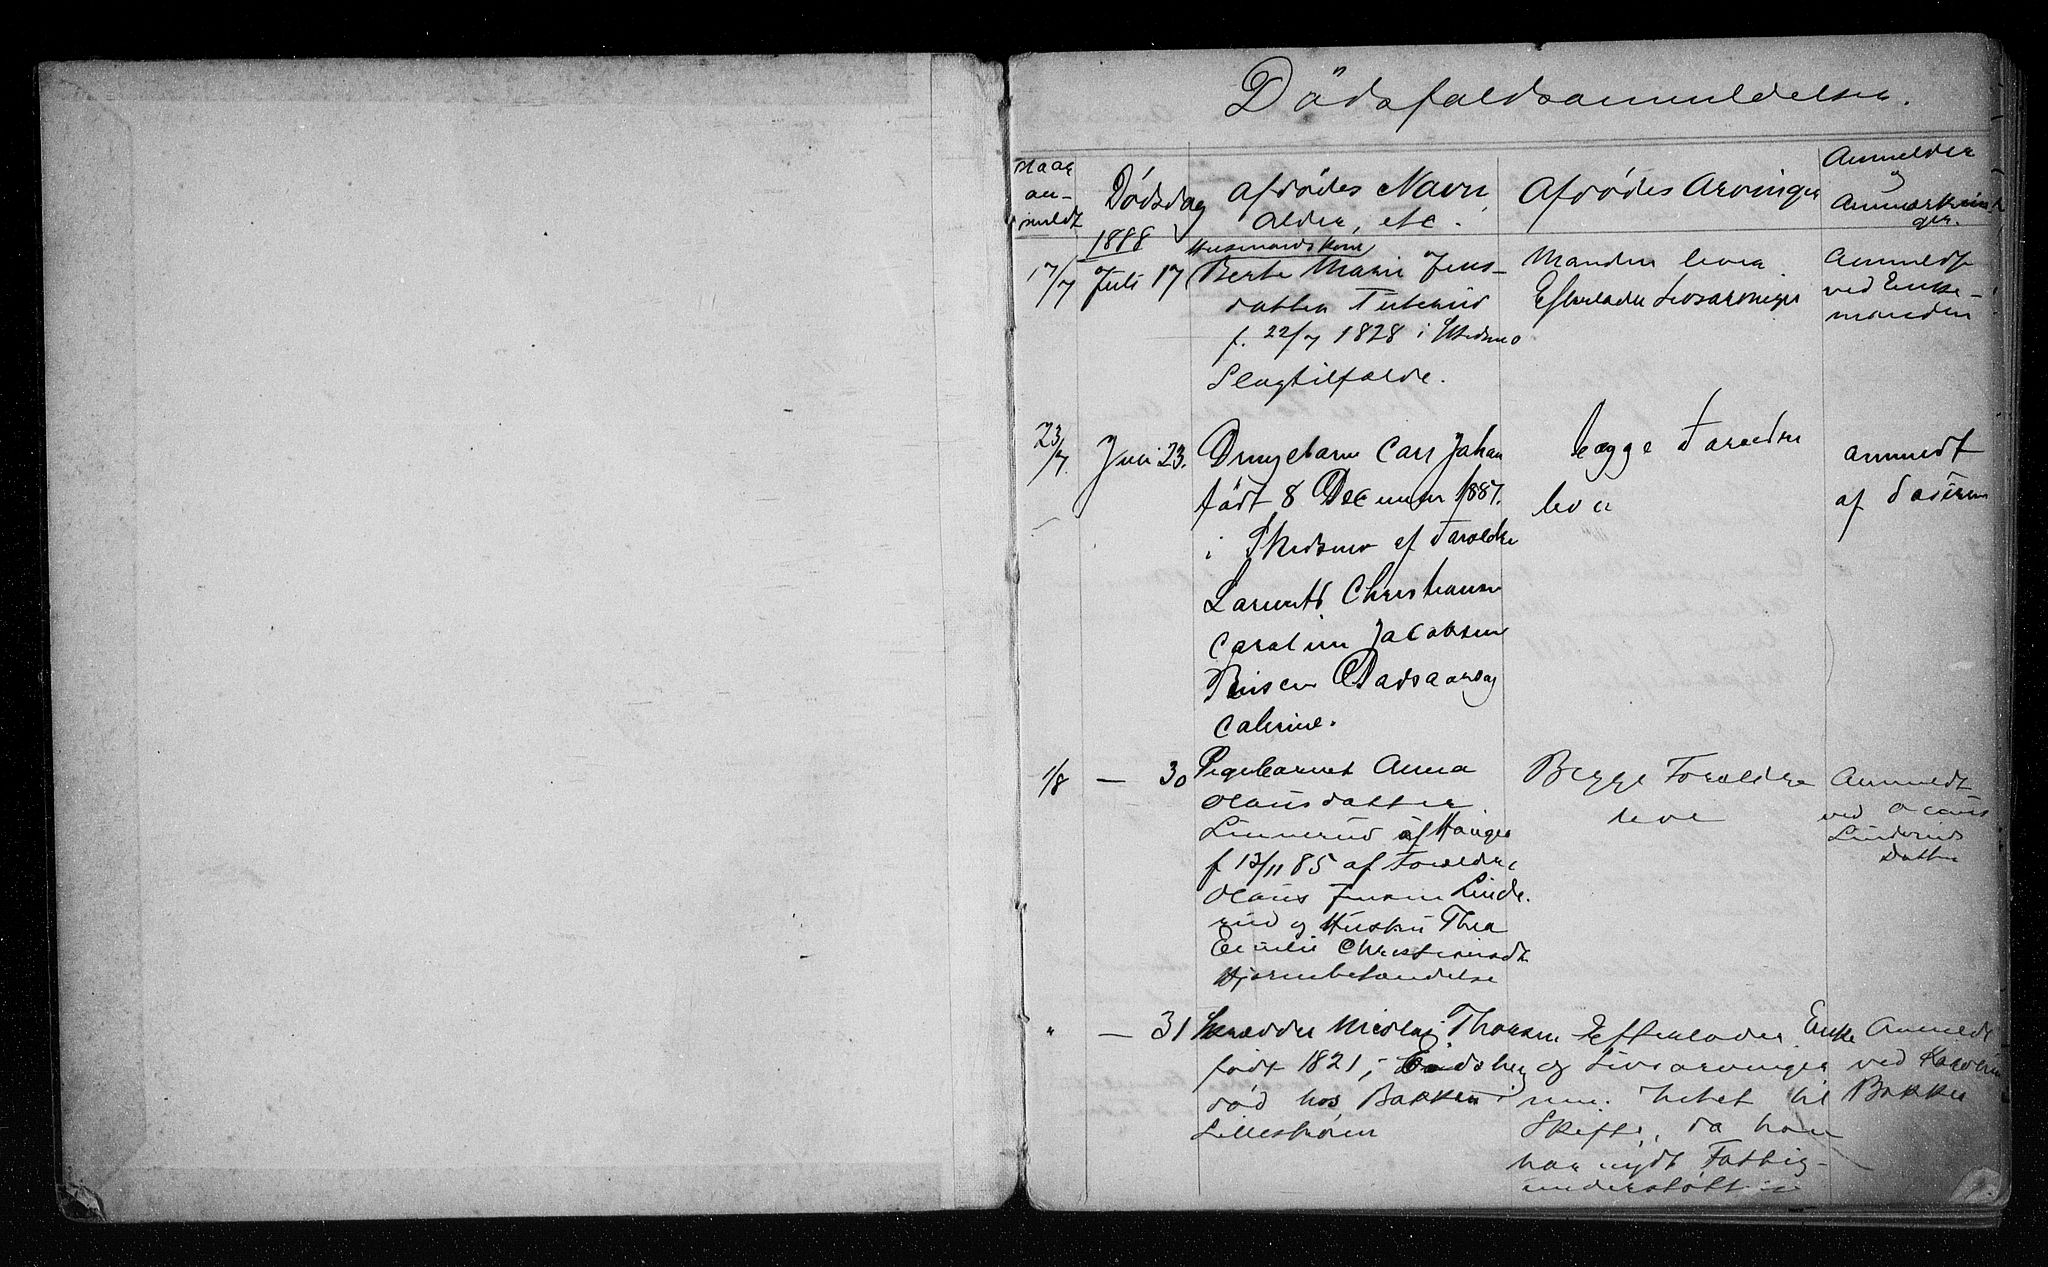 Dødsfaldsanmeldelser.
Naar an-meldt
Dødsdag
Afdødes Navn, Alder, etc.
Afdødes Arvinger
Anmelder og Anmærkninger.
1888
17/7 Juli 17
Husmandskone
Berte Marie Jens-
datter
f. 22/7 1828 i Skedsmo
Slagtilfælde.
Manden lever.
Efterlader Livsarvinger
Anmeldt
ved Enke-
manden
23/7. Juli 23.
Drengebarn Carl Johan
født 8 December 1887.
i Skedsmo af Forældre
Laurits Christiansen
Caroline Jacobsen
begge Forældre
leve
anmeldt
af Faderen
1/8 — 30
Pigebarnet Anna
Olausdatter
Linnerud af
f 13/11 85 af Forældre
Olaus Jensen Linde-
rud og Hustru Thea
Emilie Christiansdt
Hjernebetændelse
Begge Forældre
leve
Anmeldt
ved Olaus
Linderuds
Datter
" — 31
Skrædder Nicolai Thoresen
født 1821, i Eidsberg
død hos Bakken
Lillestrøm
Efterlader Enke
og Livsarvinger
men Intet til
Skifte, da han
har nydt Fattig-
understøttelse
Anmeldt
ved Karoline
Bakken
1.